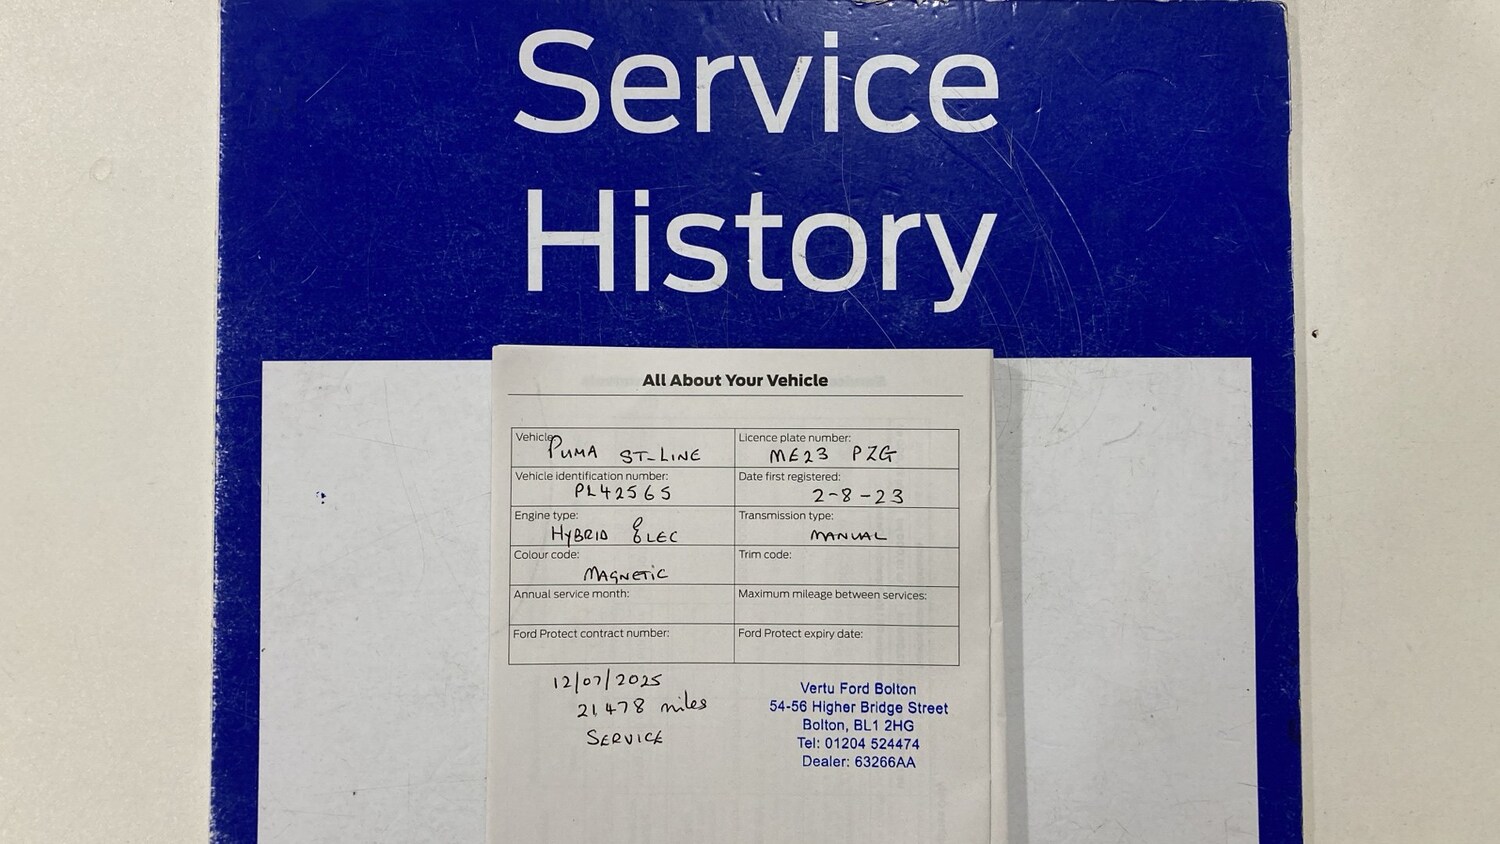 Service
History
All About Your Vehicle
Vehicle PUMA ST-LINE
Licence plate number: ME23 PZG
Vehicle identification number: PL42565
Date first registered: 2-8-23
Engine type: HYBRID ELEC
Transmission type: MANUAL
Colour code: MAGNETIC
Trim code:
Annual service month:
Maximum mileage between services:
Ford Protect contract number:
Ford Protect expiry date:
12/07/2025
21,478 miles
SERVICE
Vertu Ford Bolton
54-56 Higher Bridge Street
Bolton, BL1 2HG
Tel: 01204 524474
Dealer: 63266AA